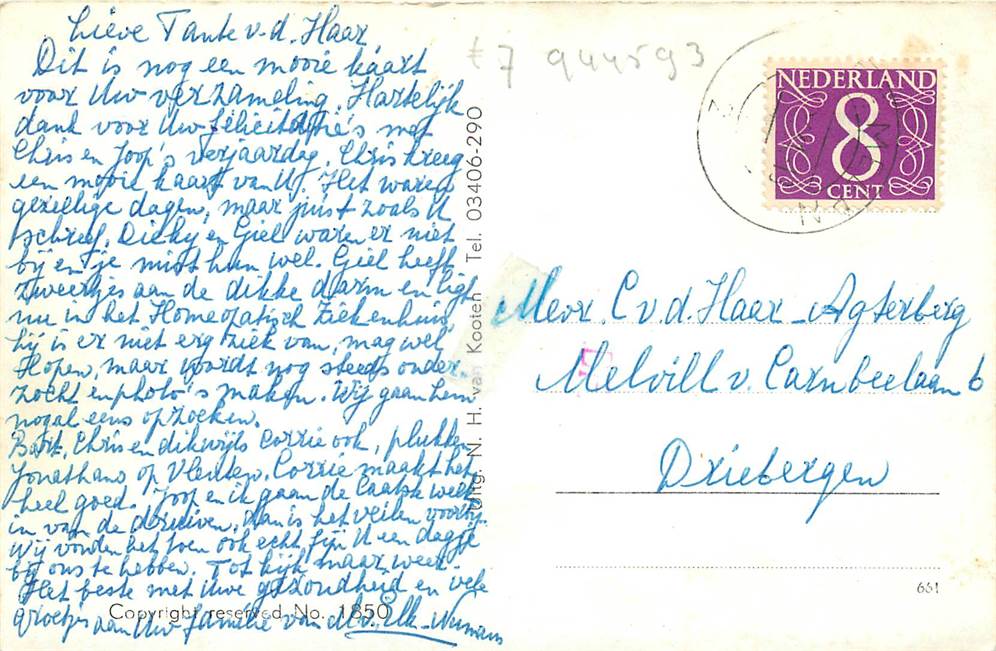 Lieve Tante v.d. Haar,
Dit is nog een mooie kaart
voor Uw verzameling. Hartelijk
dank voor Uw felicitatie's met
Chris en Joop's verjaardag. Chris kreeg
een mooie kaart van U. Het waren
gezellige dagen, maar juist zoals U
schreef, Dicky en Giel waren er niet
bij en je mist hun wel. Giel heeft
zweertjes aan de dikke darm en ligt
nu in het Homeopatisch Ziekenhuis,
hij is er niet erg ziek van, mag wel
lopen, maar wordt nog steeds onder-
zocht en photo's maken. Wij gaan hem
nogal eens opzoeken.
Bart, Chris en dikwijls Corrie ook, plukken
Jonathans op Vleuten. Corrie maakt het
heel goed. Joop en ik gaan de laatste week
in van de druiven, dan is het veilen voorbij.
Wij vonden het toen ook echt fijn U een dagje
bij ons te hebben. Tot kijk maar weer.
Het beste met Uwe gezondheid en vele
groetjes aan Uw familie van M. v. Elk-
Copyright reserved No. 1850
Uitg. N. H. van Kooten Tel. 03406-290
7 944593
NEDERLAND
8
CENT
Mevr. C v d Haar - Agterberg
Melvill v. Carnbeelaan 6
Driebergen
661